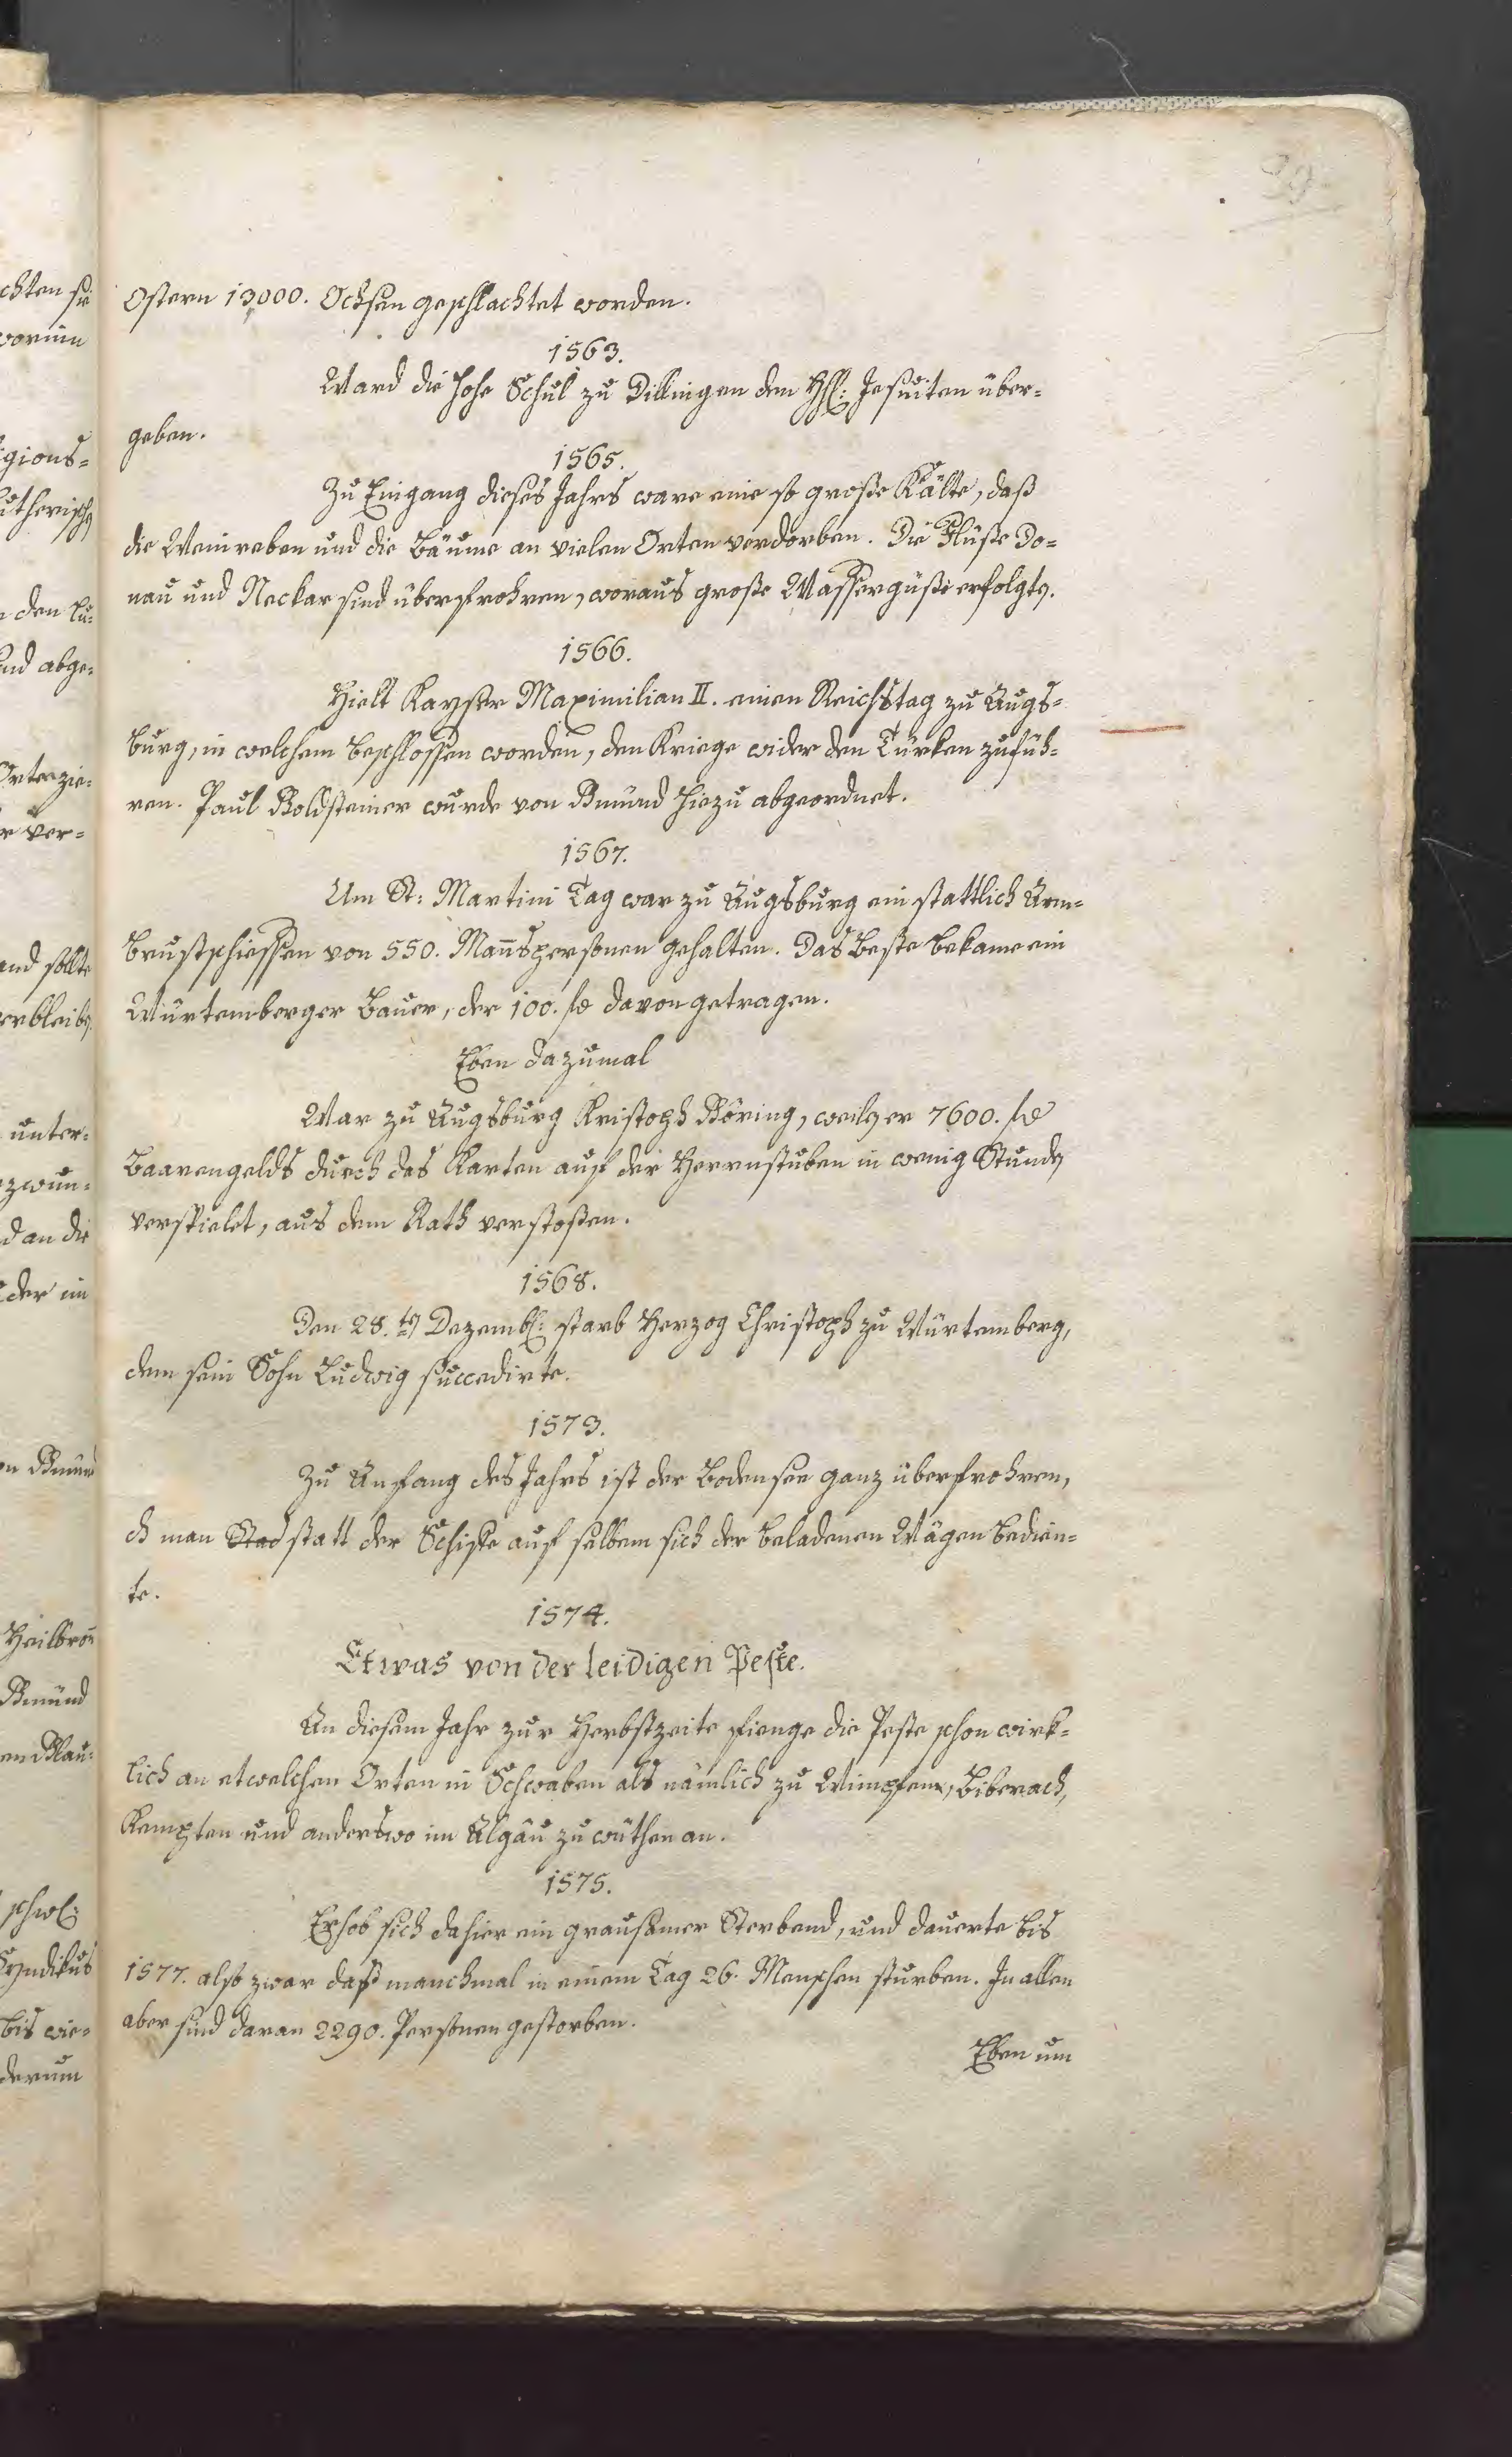 39
Ostern 13000. Ochsen geschlachtet worden.
1563.
Ward die hohe Schul zu Dillingen den HH: Jesuiten über-
geben.
1565.
Zu Eingang dieses Jahrs ware eine so große Kälte, daß
die Weinreben und die Bäume an vielen Orten verdorben. Die Flüße Do-
nau und Neckar sind überfrohren, woraus große Wassergüße erfolgten.
1566.
Hielt Kayser Maximilian II. einen Reichstag zu Augs-
burg, in welchem beschlossen worden, den Kriege wider den Türken zufüh-
ren. Paul Goldsteiner wurde von Gmünd hiezu abgeordnet.
1567.
Um St: Martini Tag war zu Augsburg ein stattlich Arm-
brustschiessen von 550. Man̄spersonen gehalten. Das Beste bekame ein
Würtemberger Bauer, der 100. fl davon getragen.
Eben dazumal
War zu Augsburg Kristoph Böring, weilen er 7600. fl
Baarengelds durch das Karten auf der Herrnstuben in wenig Stunden
verspielet, aus dem Rath verstoßen.
1568.
Den 28.ten Dezembr: starb Herzog Christoph zu Würtemberg,
dem sein Sohn Ludwig succedirte.
1573.
Zu Anfang des Jahrs ist der Bodensee ganz überfrohren,
dß man Stad statt der Schiffe auf selbem sich der beladenen Wägen bedien-
te.
1574.
Etwas von der leidigen Peste.
An diesem Jahr zur Herbstzeite fienge die Peste schon wirk-
lich an etwelchen Orten in Schwaben als nämlich zu Wimpfen, Biberach,
Kempten und anderswo im Algäu zu wüthen an.
1575.
Erhob sich dahier ein grausamer Sterbend, und dauerte bis
1577. also zwar daß manchmal in einem Tag 26. Menschen sturben. In allen
aber sind daran 2290. Personen gestorben.
Eben um